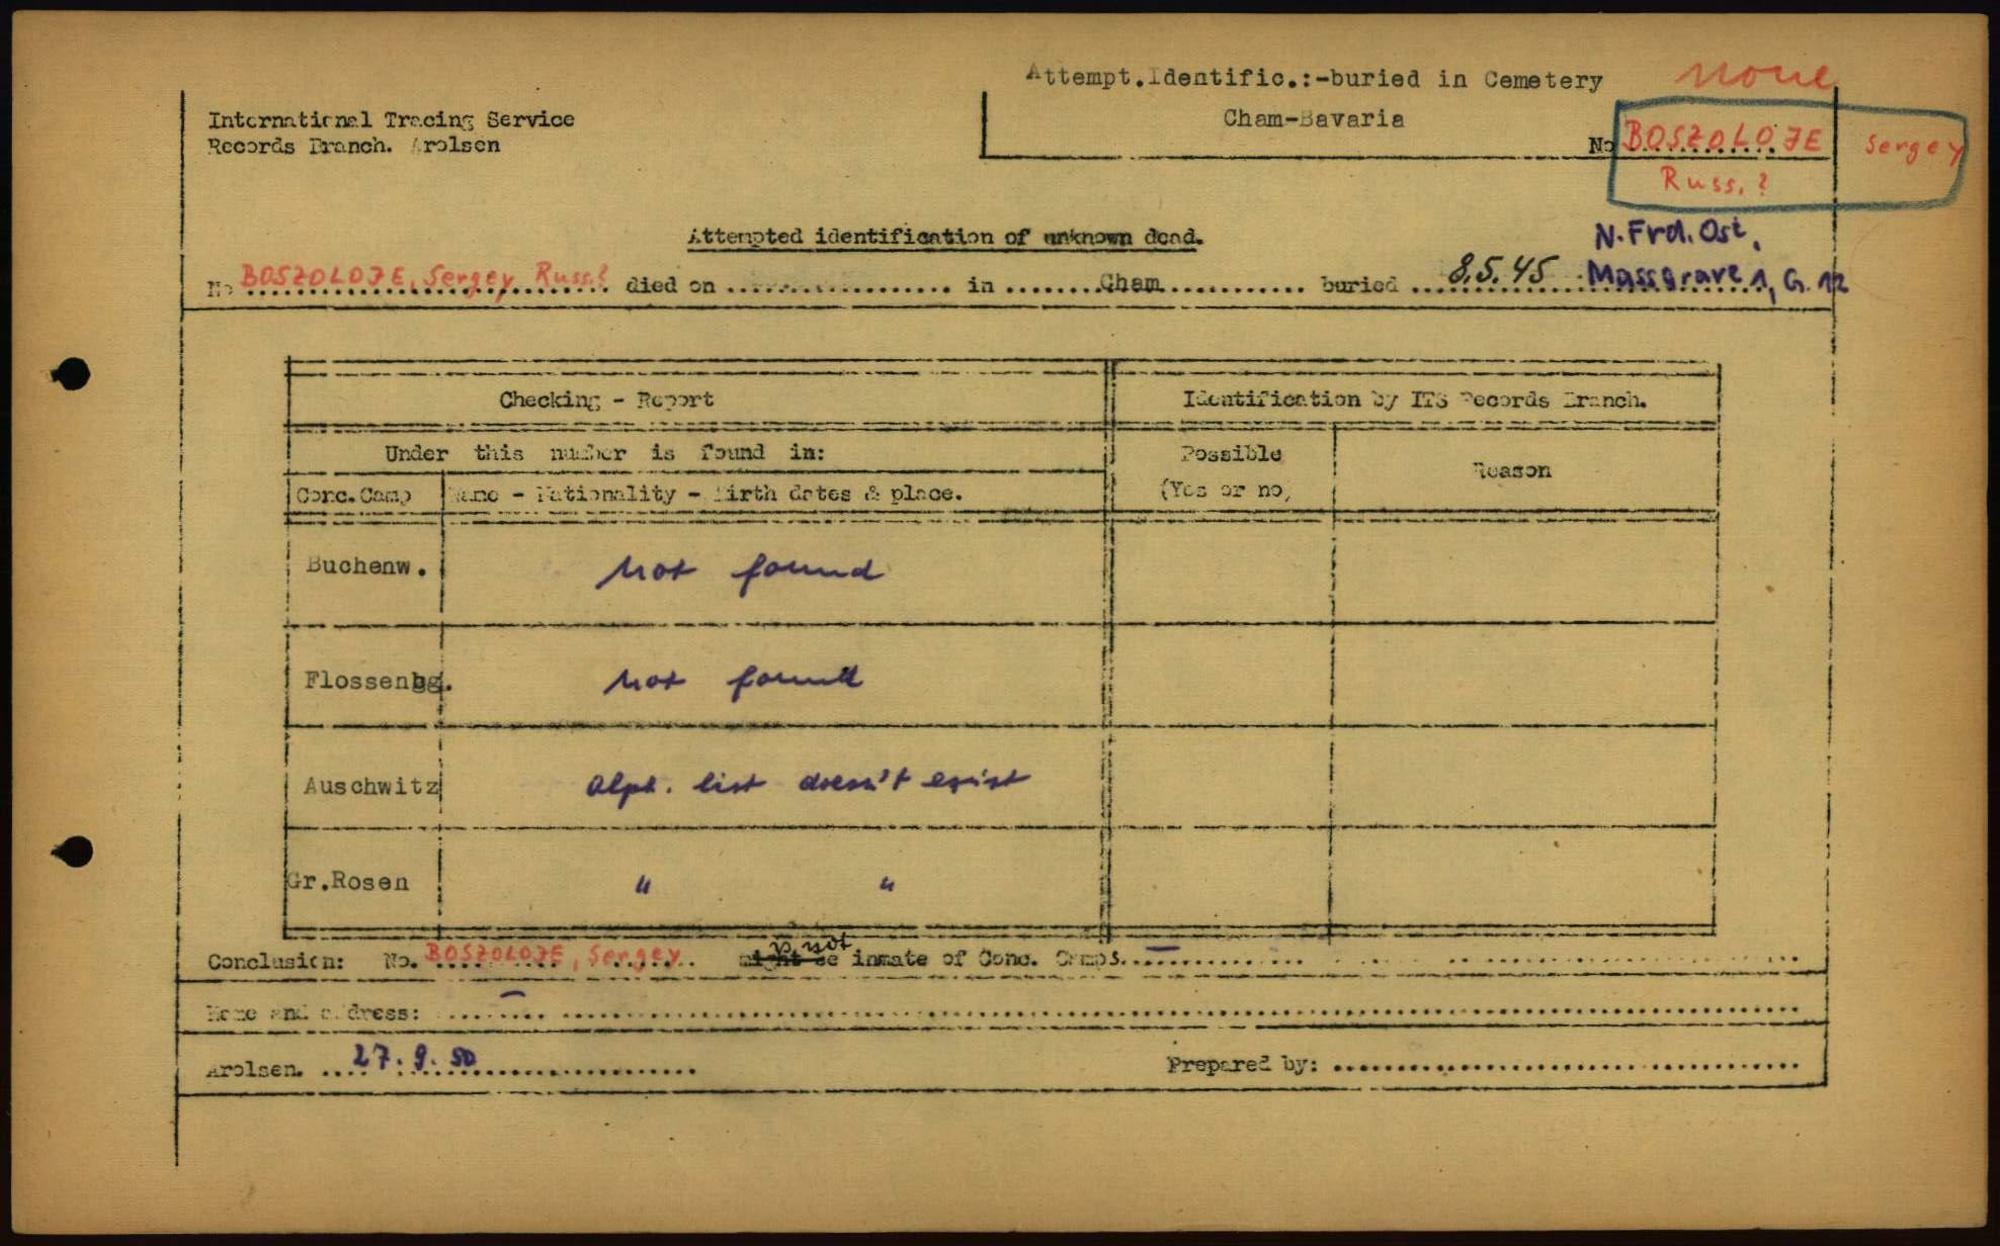 Attempt.Identific.:-buried in Cemetery
none
International Tracing Service
Cham-Bavaria
Records Branch. Arolsen
No BOSZOLOJE Sergey
Russ. ?
Attempted identification of unknown dead.
N. Frd. Ost,
No BOSZOLOJE, Sergey Russ? died on .................... in ........Cham............ buried ...8.5.45 Massgrave 1, G. 12
Checking - Report
Identification by ITS Records Branch.
Under this number is found in:
Possible
(Yes or no)
Reason
Conc.Camp
Name - Nationality - Birth dates & place.
Buchenw.
not found
Flossenbg.
not found
Auschwitz
Alph. list doesn't exist
Gr.Rosen
" "
is not
Conclusion: No. BOSZOLOJE, Sergey.. might be inmate of Conc. Camps. –
Name and address: –
Arolsen. 27. 9. 50
Prepared by: ....................................